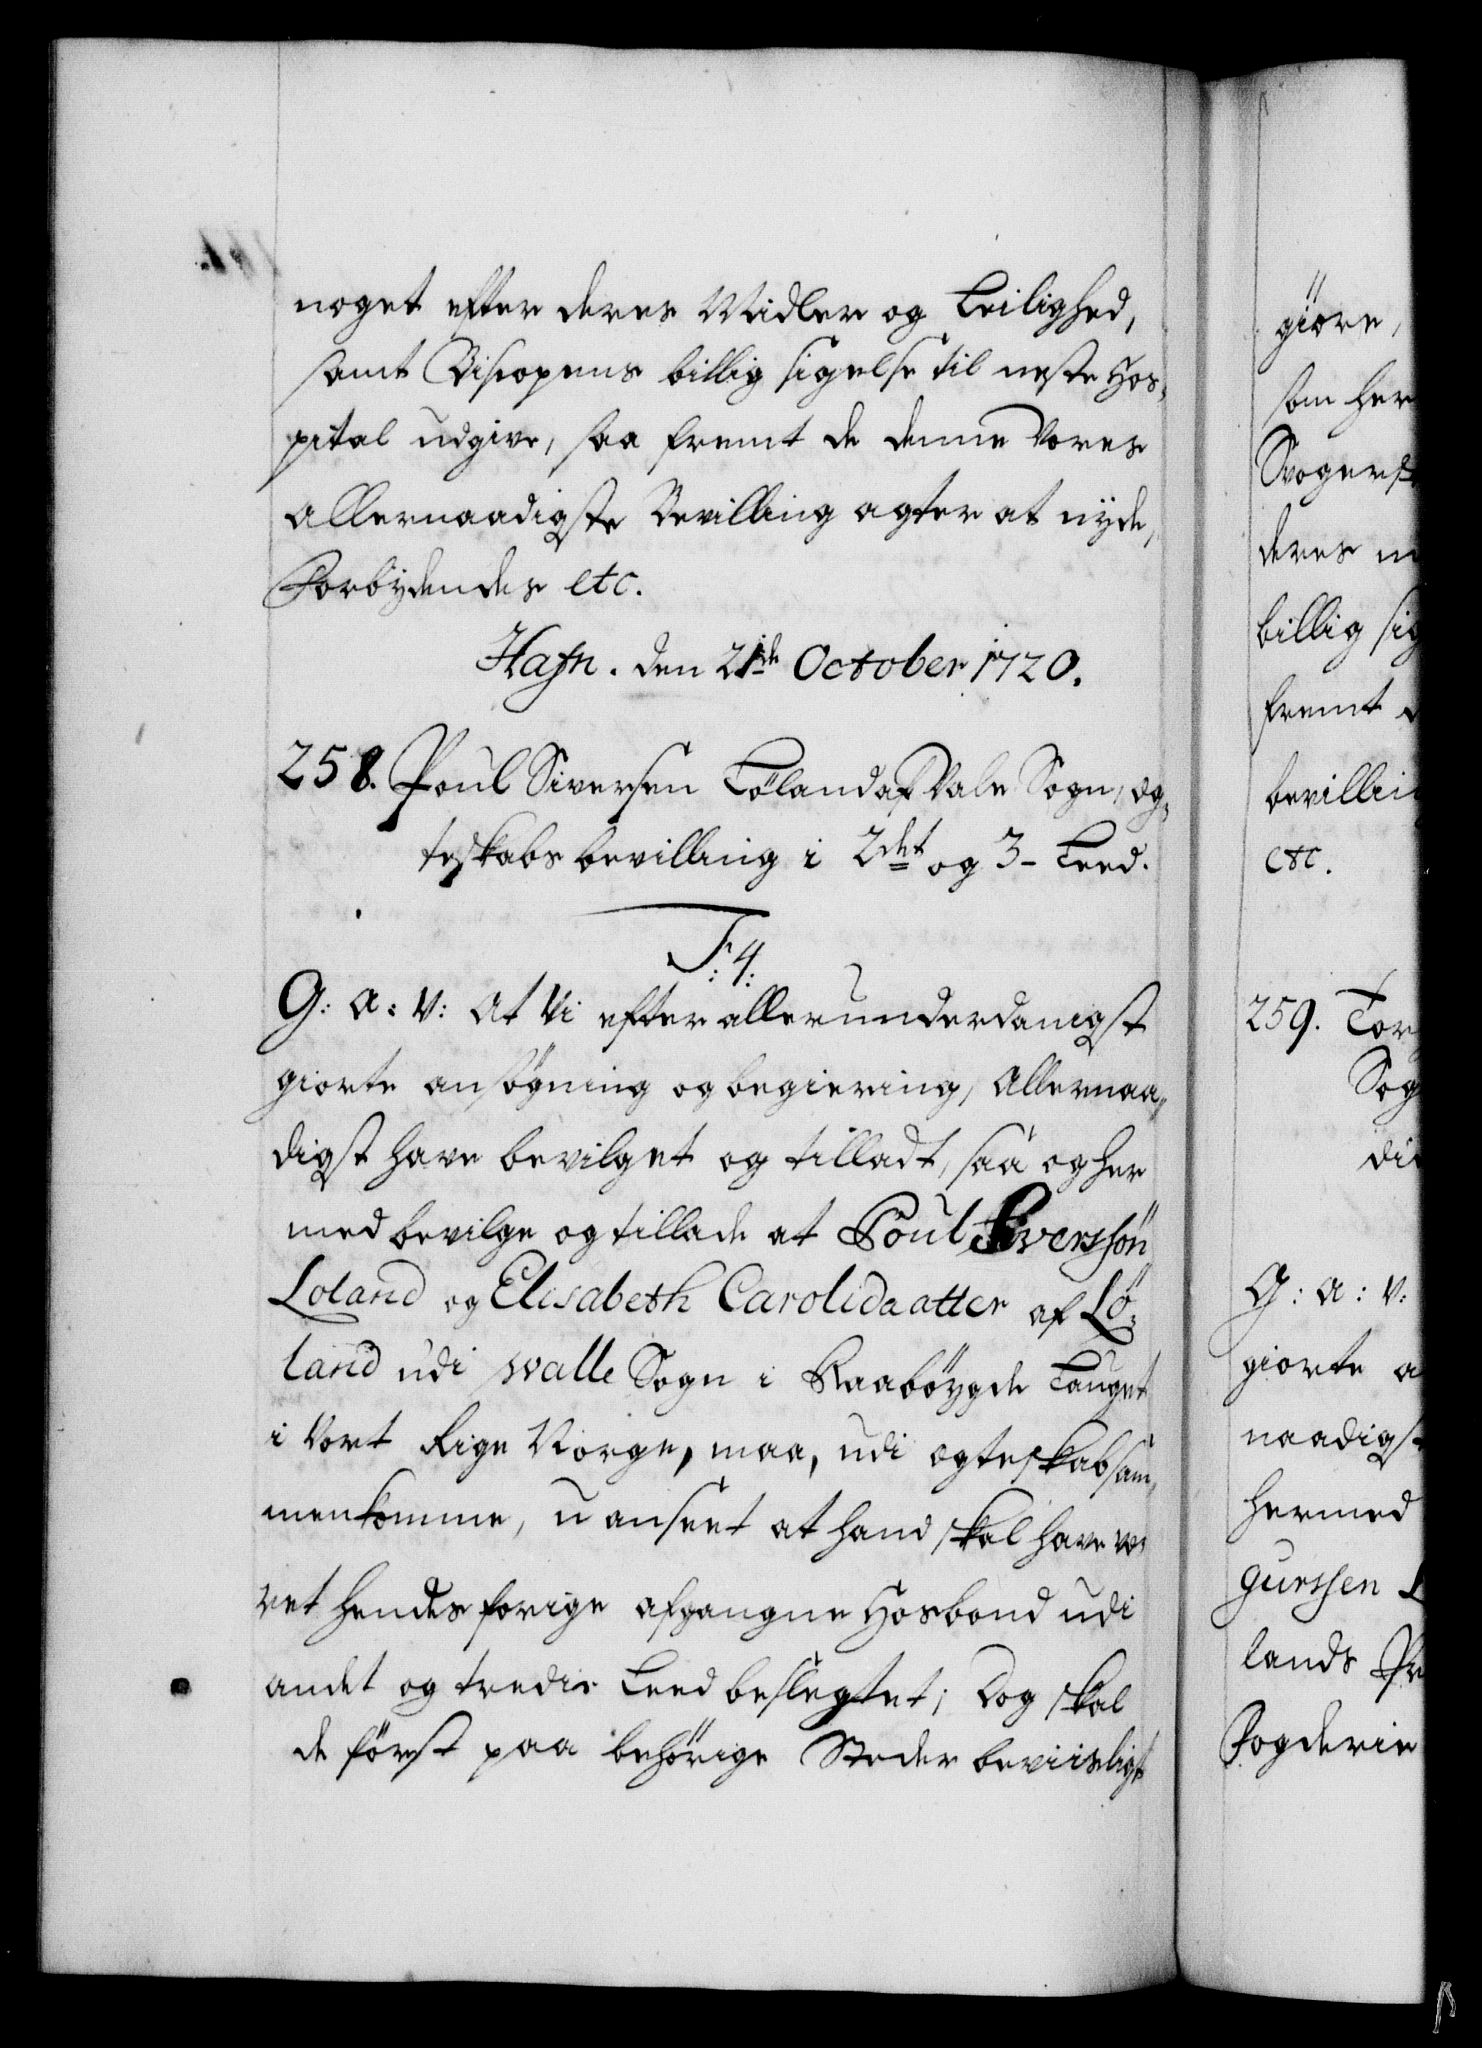 noget efter deres Midler og Leilighed,
samt Biscopens billig sigelse til neste Hos-
pital udgive, saa fremt de denne Vores
allernaadigste Bevilling agter at nÿde,
Forbÿdendes etc.
Hafn. den 21de October 1720.
258. Poul Siversen Løland af Vale Sogn, æg-
teskabs bevilling i 2det og 3- Leed.
F:4:
G: a: V: At Vi efter allerunderdanigst
giorte ansøgning og begiering, Allernaa-
digst have bevilget og tilladt, saa og her
med bevilge og tillade at Poul Sverssøn
Loland og Elisabeth Carolidaatter af Lø-
land udi Walle Sogn i Raabøygde Lauget
i Vort Rige Norge, maa, udi egteskab sam-
menkomme, uanseet at hand skal have væ-
ret hendes forige afgangne Hosbond udi
andet og tredie Leed beslegtet; Dog skal
de først paa behørige Steder beviisligt
giøre,
som her
Svogersk
deres m
billig sig
fremt
bevillin
etc.
259. Tor
Sog
die
G: a: V:
giorte a
naadigst
hermed
gurssen L
lands Pr
Fogderie